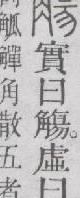 實曰觴。虛曰
觚觶角散五者